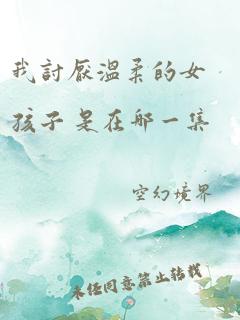 我討厭溫柔的女
孩子是在哪一集
空幻境界
未经同意禁止转载